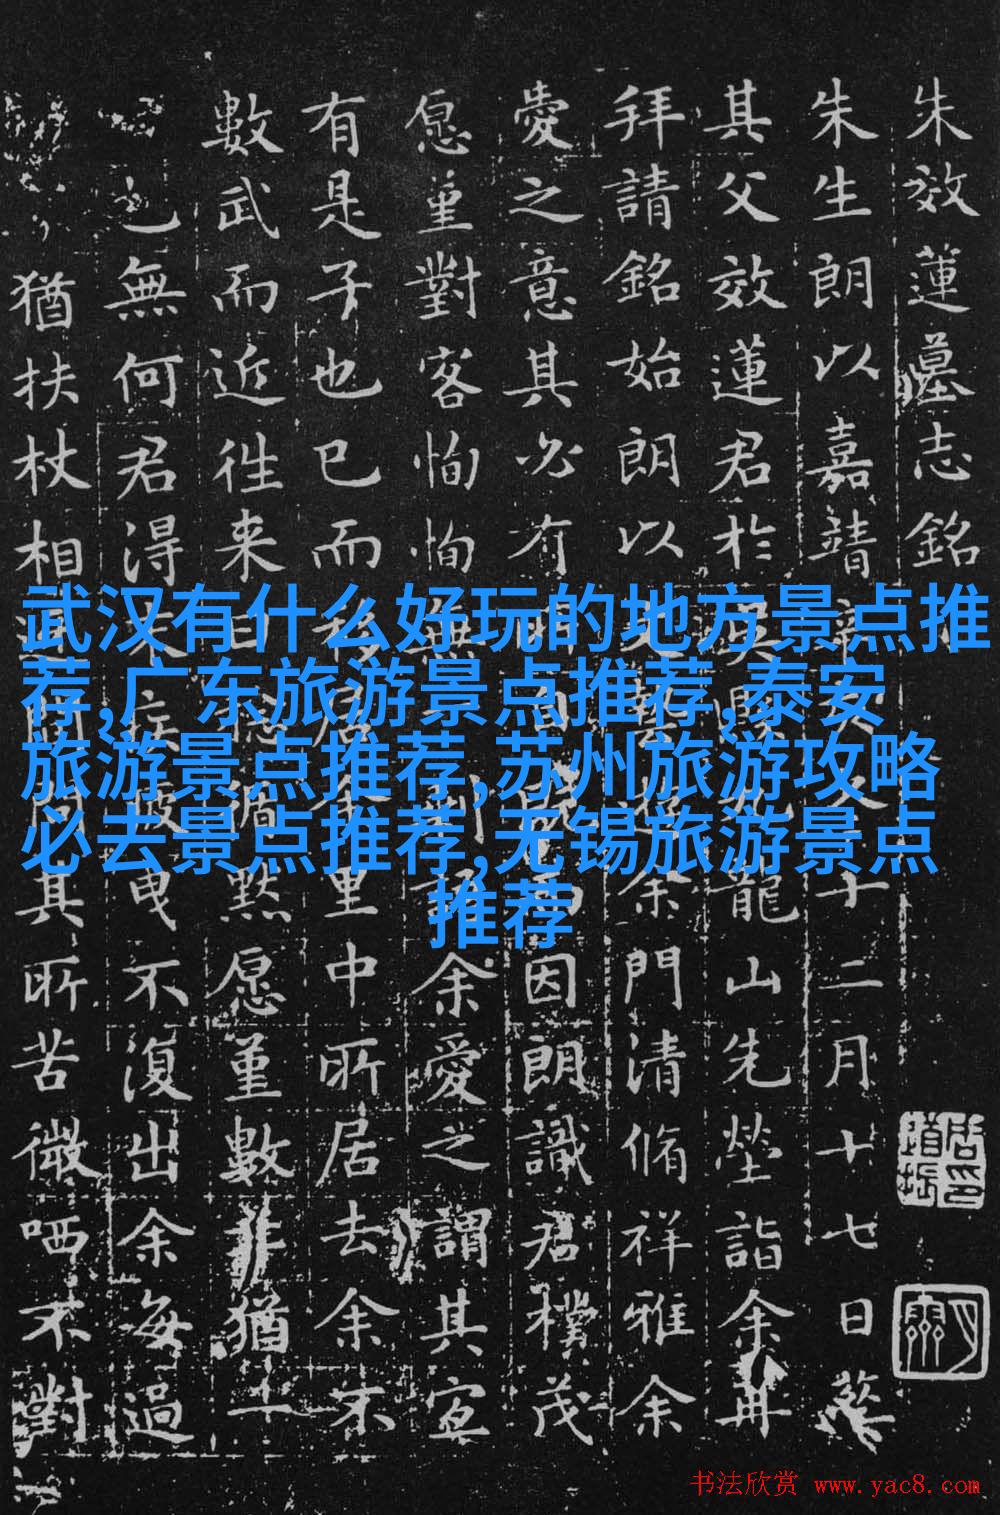 朱效蓮墓志銘
朱生朗以嘉靖十二月十七日葬
其父效蓮君於龍山先塋詣余再
拜請銘始朗以余門清脩祥雅余
愛之意其必有因朗識君樸茂
愿重對客恂恂無余愛之謂其宜
有是子也已而里中所居去余不
數武而近往来日黙愿重數猶一
也無何君得疾被曳不復出余每過
猶扶杖相問其所苦微哂不對
武汉有什么好玩的地方景点推
荐,广东旅游景点推荐,泰安
旅游景点推荐,苏州旅游攻略
必去景点推荐,无锡旅游景点
推荐
书法欣赏 www.yac8.com